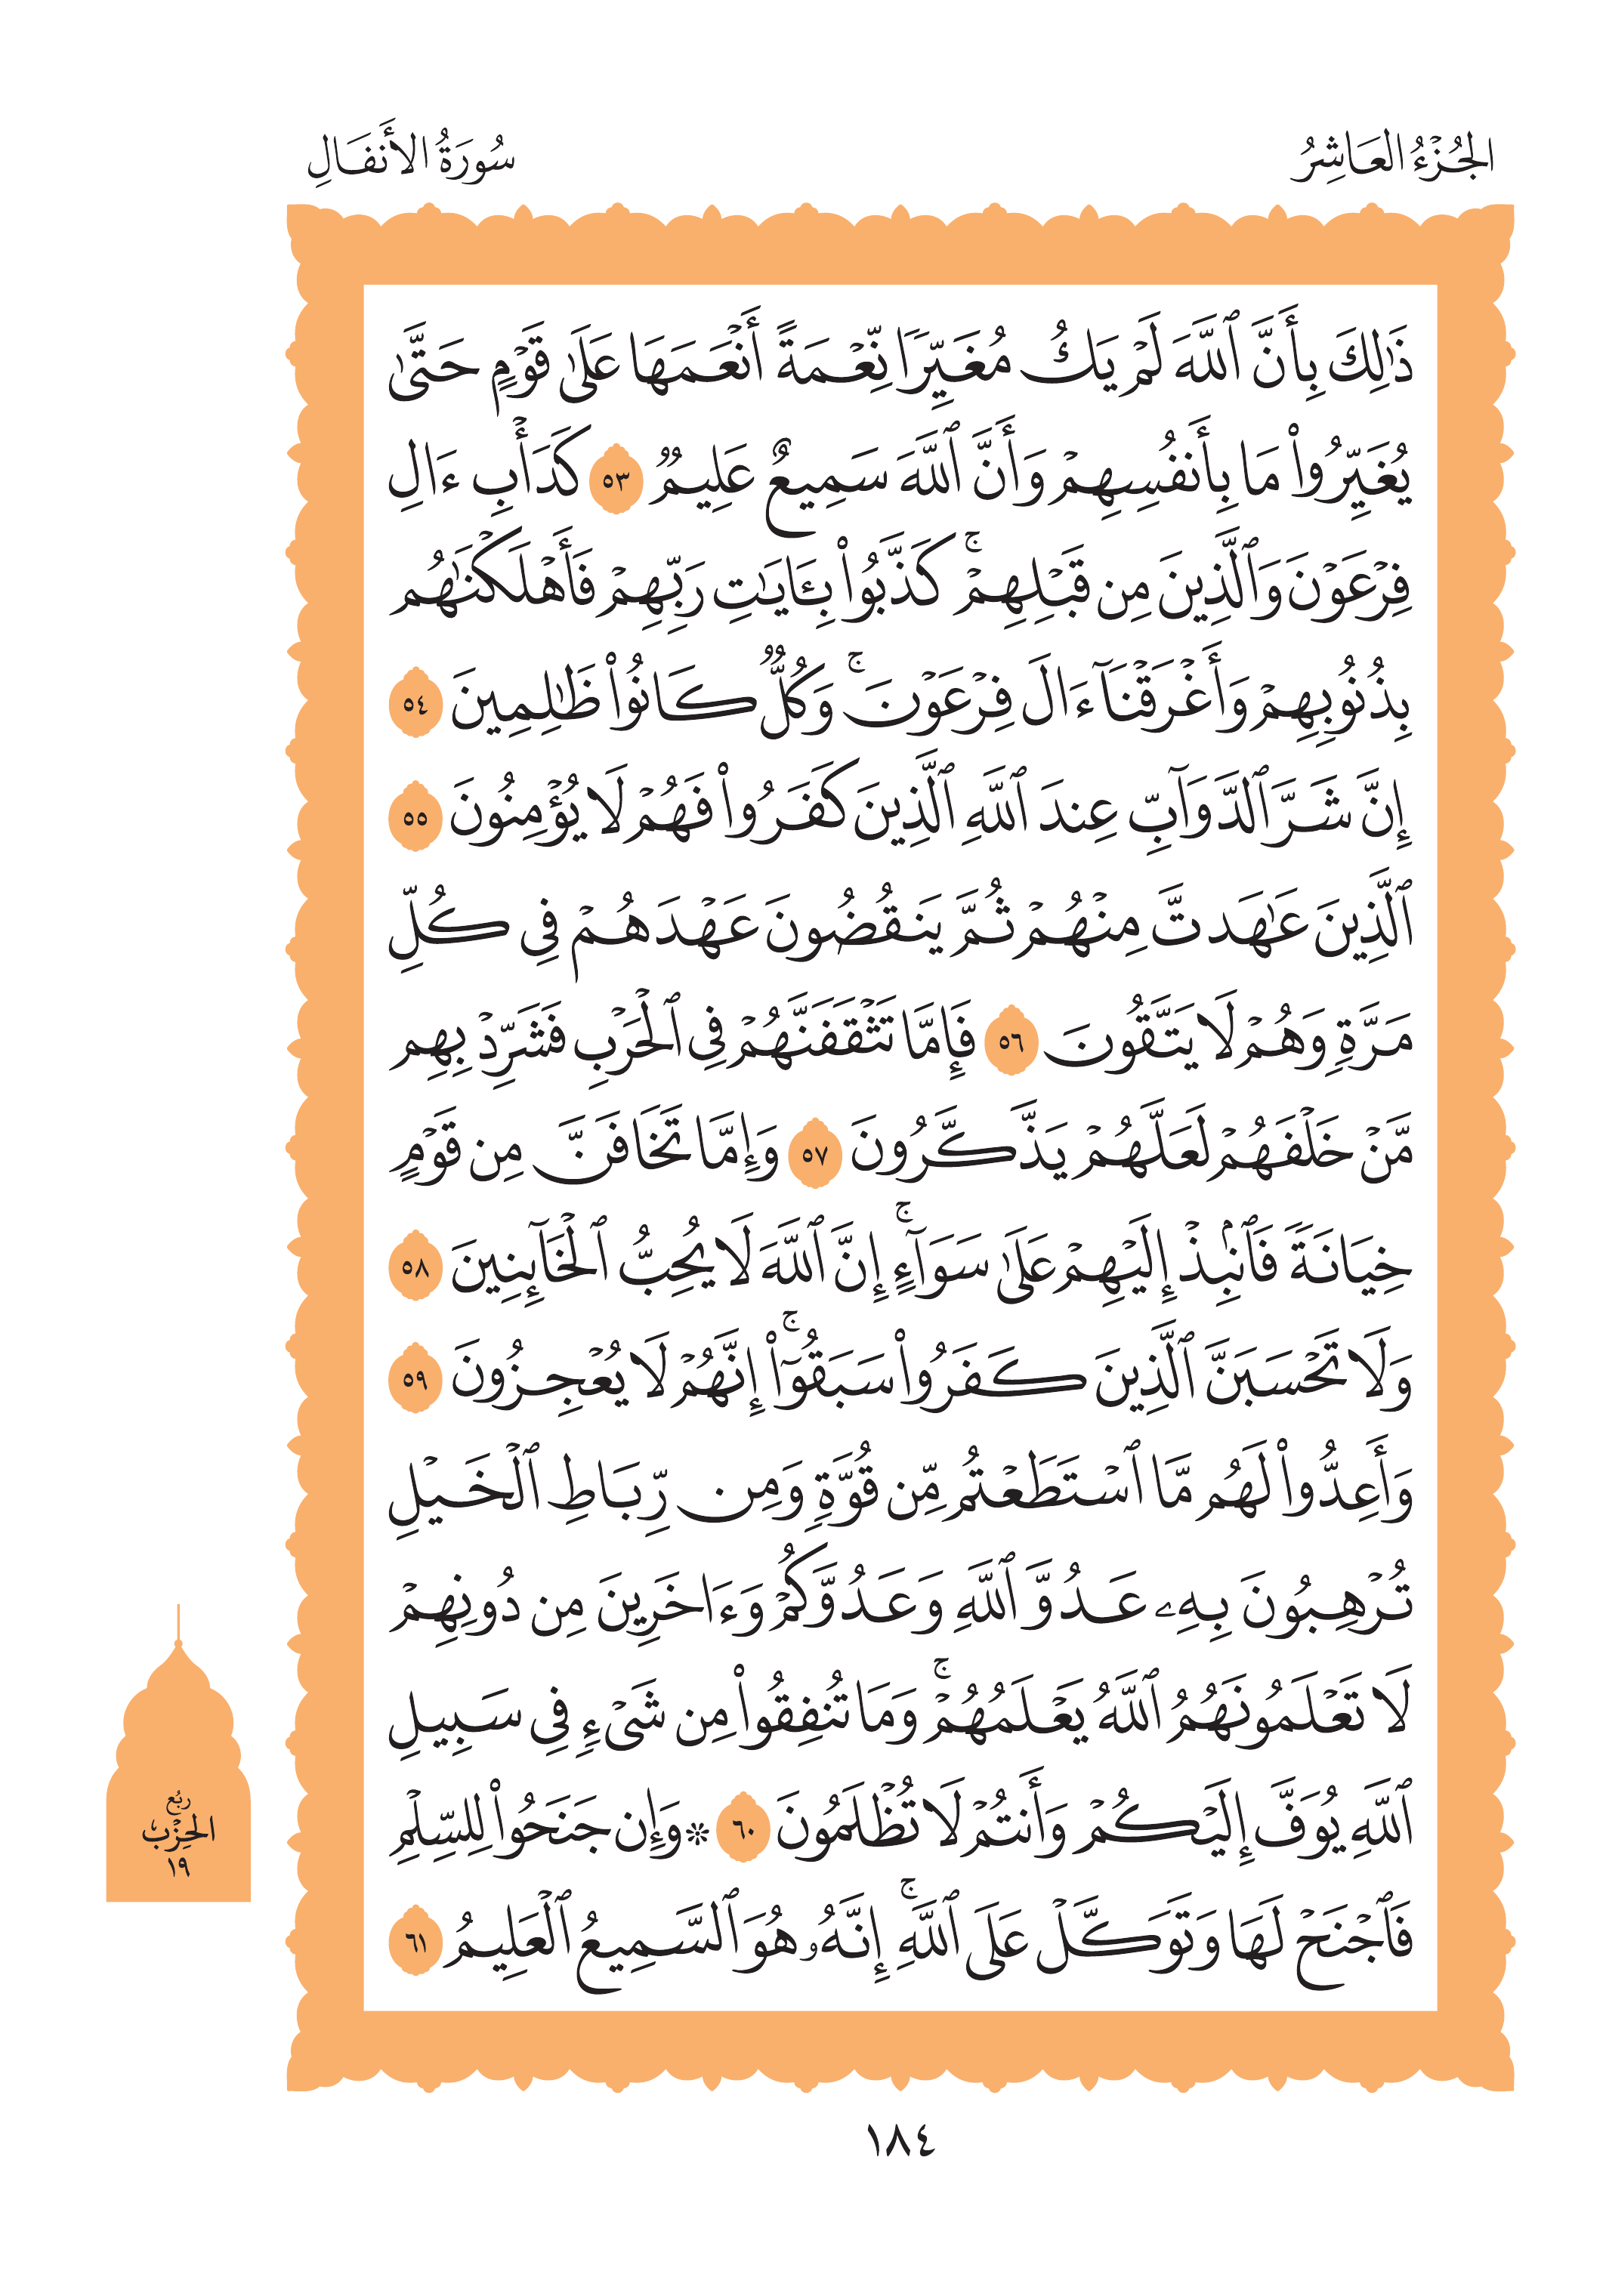 الجُزْءُ العَاشِرُ
سُورَةُ الأَنفَالِ
ذَٰلِكَ بِأَنَّ ٱللَّهَ لَمْ يَكُ مُغَيِّرًا نِّعْمَةً أَنْعَمَهَا عَلَىٰ قَوْمٍ حَتَّىٰ
يُغَيِّرُوا۟ مَا بِأَنفُسِهِمْ وَأَنَّ ٱللَّهَ سَمِيعٌ عَلِيمٌ ٥٣ كَدَأْبِ ءَالِ
فِرْعَوْنَ وَٱلَّذِينَ مِن قَبْلِهِمْ ۚ كَذَّبُوا۟ بِـَٔايَـٰتِ رَبِّهِمْ فَأَهْلَكْنَـٰهُم
بِذُنُوبِهِمْ وَأَغْرَقْنَآ ءَالَ فِرْعَوْنَ ۚ وَكُلٌّ كَانُوا۟ ظَـٰلِمِينَ ٥٤
إِنَّ شَرَّ ٱلدَّوَآبِّ عِندَ ٱللَّهِ ٱلَّذِينَ كَفَرُوا۟ فَهُمْ لَا يُؤْمِنُونَ ٥٥
ٱلَّذِينَ عَـٰهَدتَّ مِنْهُمْ ثُمَّ يَنقُضُونَ عَهْدَهُمْ فِى كُلِّ
مَرَّةٍ وَهُمْ لَا يَتَّقُونَ ٥٦ فَإِمَّا تَثْقَفَنَّهُمْ فِى ٱلْحَرْبِ فَشَرِّدْ بِهِم
مَّنْ خَلْفَهُمْ لَعَلَّهُمْ يَذَّكَّرُونَ ٥٧ وَإِمَّا تَخَافَنَّ مِن قَوْمٍ
خِيَانَةً فَٱنۢبِذْ إِلَيْهِمْ عَلَىٰ سَوَآءٍ ۚ إِنَّ ٱللَّهَ لَا يُحِبُّ ٱلْخَآئِنِينَ ٥٨
وَلَا تَحْسَبَنَّ ٱلَّذِينَ كَفَرُوا۟ سَبَقُوٓا۟ ۚ إِنَّهُمْ لَا يُعْجِزُونَ ٥٩
وَأَعِدُّوا۟ لَهُم مَّا ٱسْتَطَعْتُم مِّن قُوَّةٍ وَمِن رِّبَاطِ ٱلْخَيْلِ
تُرْهِبُونَ بِهِۦ عَدُوَّ ٱللَّهِ وَعَدُوَّكُمْ وَءَاخَرِينَ مِن دُونِهِمْ
لَا تَعْلَمُونَهُمُ ٱللَّهُ يَعْلَمُهُمْ ۚ وَمَا تُنفِقُوا۟ مِن شَىْءٍ فِى سَبِيلِ
ٱللَّهِ يُوَفَّ إِلَيْكُمْ وَأَنتُمْ لَا تُظْلَمُونَ ٦٠ ۞ وَإِن جَنَحُوا۟ لِلسِّلْمِ
فَٱجْنَحْ لَهَا وَتَوَكَّلْ عَلَى ٱللَّهِ ۚ إِنَّهُۥ هُوَ ٱلسَّمِيعُ ٱلْعَلِيمُ ٦١
رُبُع
الحِزْب
١٩
١٨٤